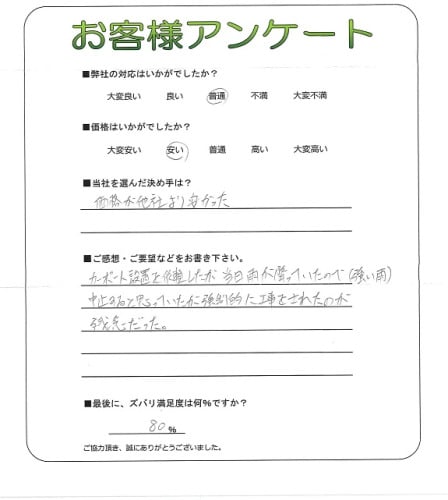 お客様アンケート
■弊社の対応はいかがでしたか？
大変良い 良い 普通 不満 大変不満
■価格はいかがでしたか？
大変安い 安い 普通 高い 大変高い
■当社を選んだ決め手は？
価格が他社より安かった
■ご感想・ご要望などをお書き下さい。
カーポート設置を依頼したが当日雨が降っていたので（強い雨）
中止すると思っていたが強制的に工事をされたのが
残念だった。
■最後に、ズバリ満足度は何％ですか？
80 %
ご協力頂き、誠にありがとうございました。